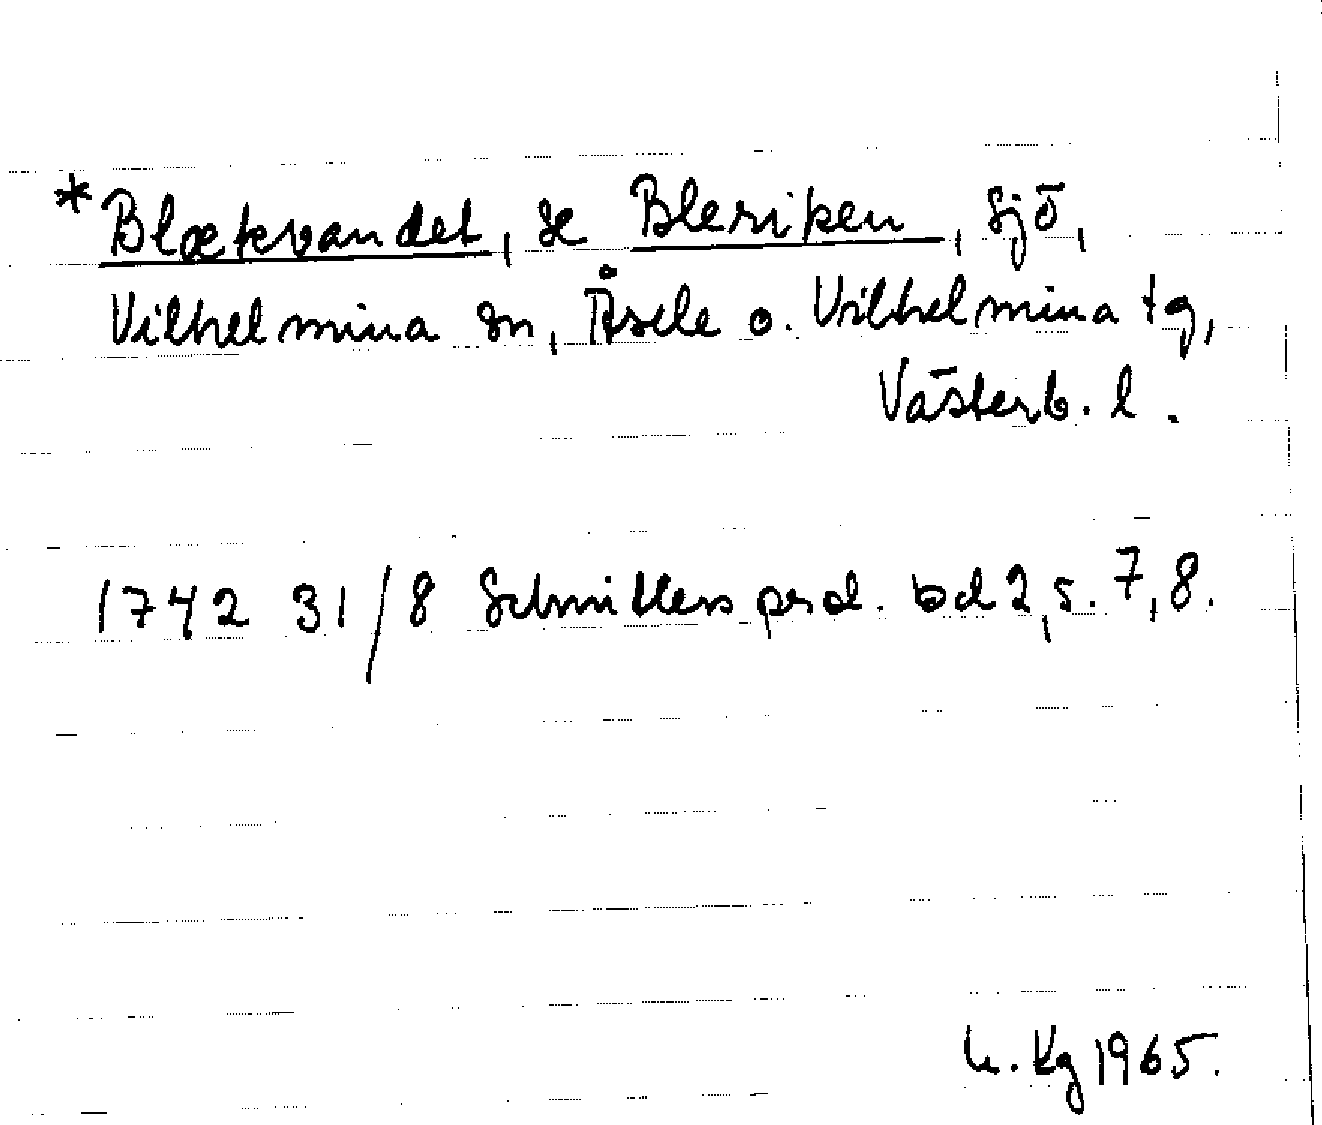 *Blækvandet, se Bleriken, sjö,
Vilhelmina sn, Åsele o. Vilhelmina tg,
Västerb. l.
1742 31/8 Schnitlers prot. bd 2, s. 7, 8.
Kg 1965.